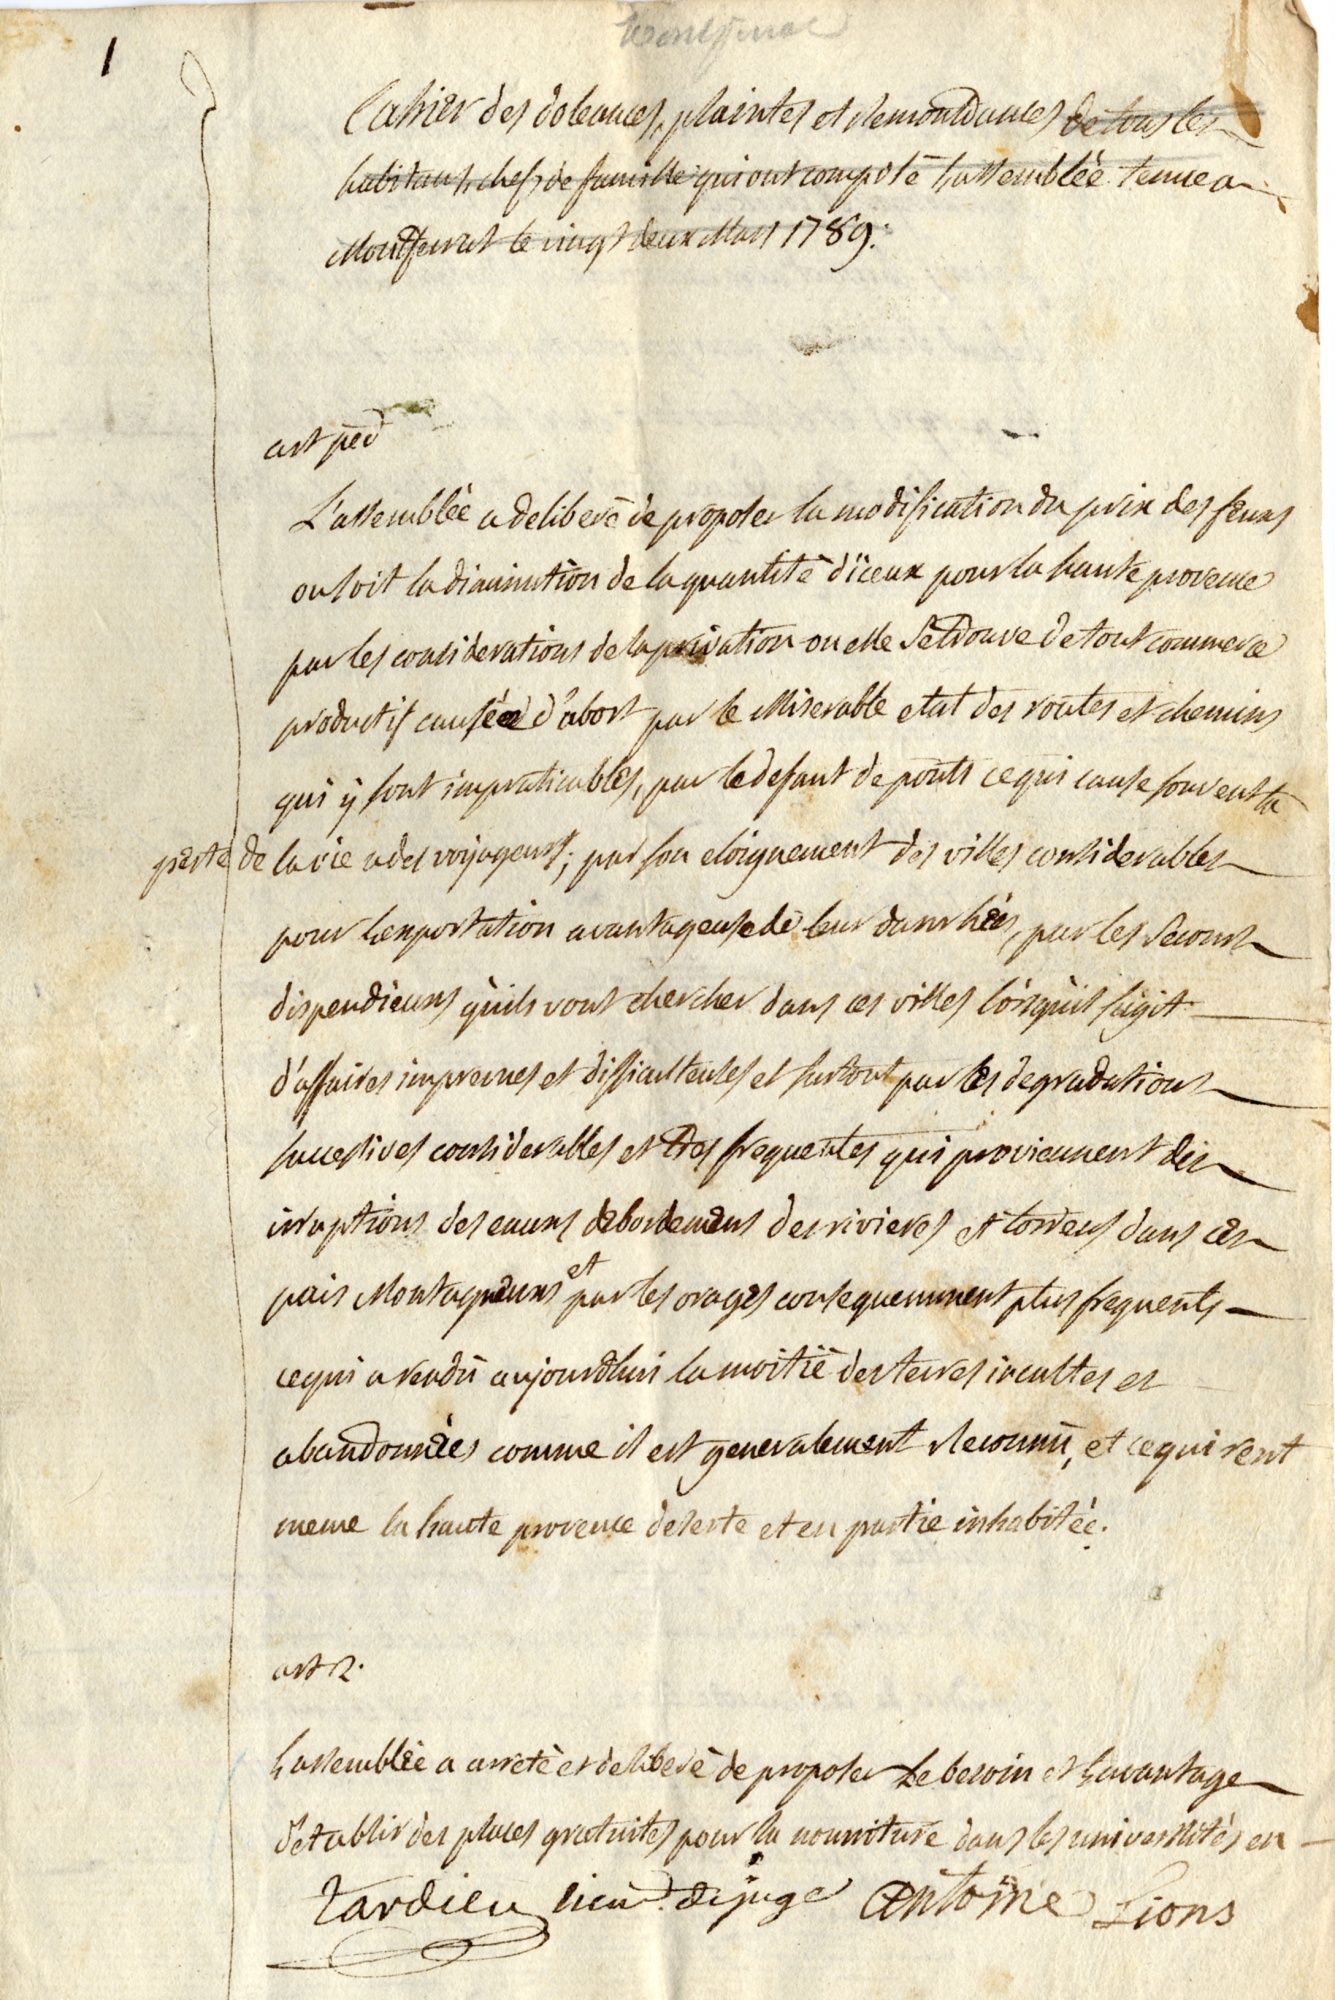 1
Montferrat
Cahier des doleances, plaintes et Remontrances de tous les
habitans, chefs de famille qui ont composé L'assemblée tenue a
Montferrat le vingt deux Mars 1789.
art per
L'assemblée a deliberé de proposer la modification du prix des feux
ou soit la diminution de la quantité d'iceux pour la haute provence
par les considerations de la privation ou elle se trouve de tout commerce
productif causée d'abort par le Miserable etat des routes et chemins
qui ÿ sont impraticables, par le defaut de ponts ce qui cause souvent la
perte de la vie a des voyageurs; par son eloignement des villes considerables
pour L'exportation avantageuse de leur danrhées, par les Secours
dispendieux qu'ils vont chercher dans ces villes lorsqu'il s'agit
d'affaires imprevues et difficulteuses et surtout par les degradations
successives considerables et tres frequentes qui proviennent des
irruptions des eaux debordemens des rivieres et torrens dans ces
pais Montagneux et par les orages consequemment plus frequents
ce qui a rendu aujourdhui la moitié des terres incultes et
abandonnées comme il est generalement Reconnü, et ce qui rent
meme la haute provence deserte et en partie inhabitée.
art 2.
L'assemblée a arreté et deliberé de proposer Le besoin et L'avantage
d'etablir des places gratuites pour la nourriture dans les universités en
Tardieu lieut. de juge Antoine Lions